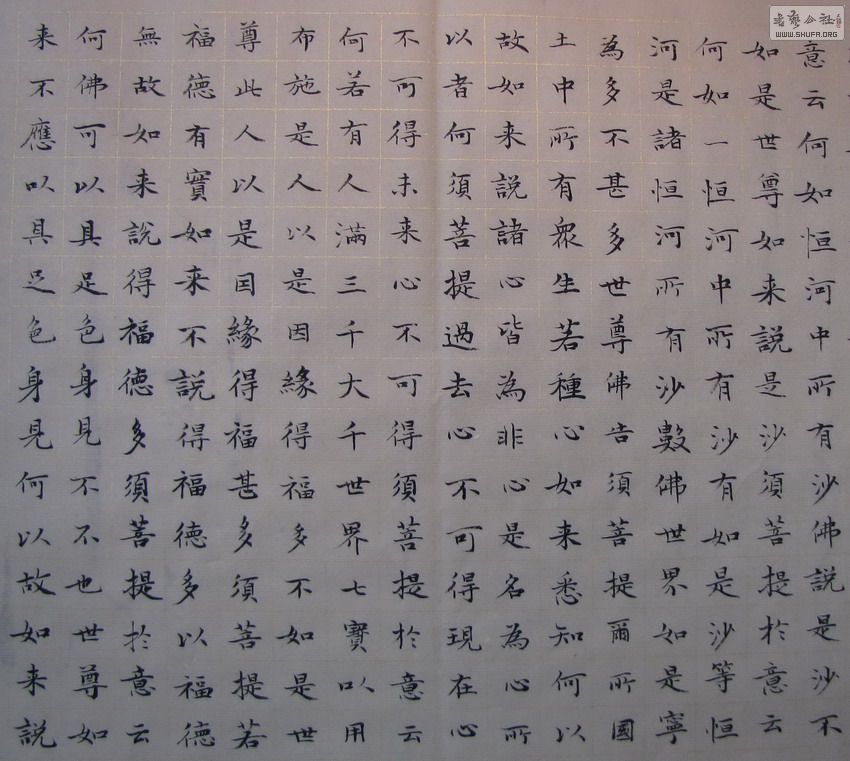 意云何如恒河中所有沙佛說是沙不
如是世尊如来說是沙須菩提扵意云
何如一恒河中所有沙有如是沙等恒
河是諸恒河所有沙數佛世界如是寧
為多不甚多世尊佛告須菩提爾所國
土中所有衆生若種心如来悉知何以
故如来說諸心皆為非心是名為心所
以者何須菩提過去心不可得現在心
不可得未来心不可得須菩提扵意云
何若有人滿三千大千世界七寳以用
布施是人以是因緣得福多不如是世
尊此人以是因緣得福甚多須菩提若
福德有實如来不說得福德多以福德
無故如来說得福德多須菩提扵意云
何佛可以具足色身見不不也世尊如
来不應以具足色身見何以故如来說
WWW.SHUFA.ORG